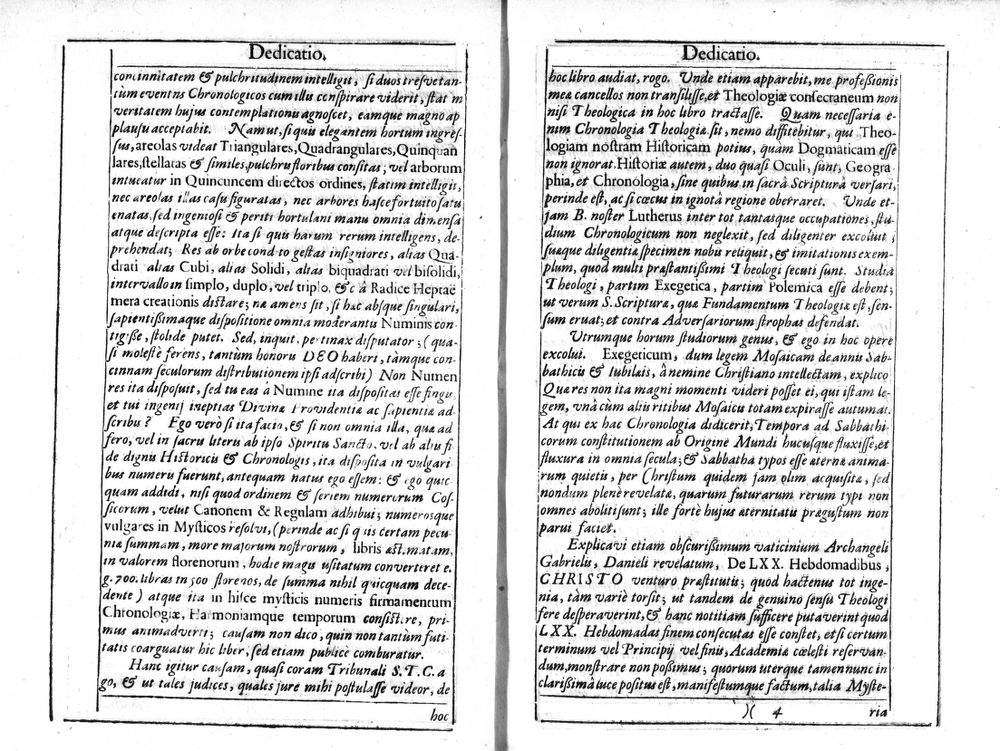 Dedicatio.
concinnitatem & pulchritudinem intelligit, si duos tresve tan-
tùm eventus Chronologicos cum illis conspirare viderit, statim
veritatem hujus contemplationis agnoscet, eamque magno ap
plausu acceptabit. Nam ut, si quis elegantem hortum ingres-
sus, areolas videat Triangulares, Quadrangulares, Quinquan
lares, stellatas & similes, pulchris floribus consitas, vel arborum
intueatur in Quincuncem directos ordines, statim intelligit,
nec areolas illas casu figuratas, nec arbores hasce fortuito satu
enatas, sed ingeniosi & periti hortulani manu omnia dimensa
atque descripta esse: Ita si quis harum rerum intelligens, de-
prehendat; Res ab orbe condito gestas insigniores, alias Qua-
drati alias Cubi, alias Solidi, alias biquadrati vel bisolidi,
intervallo in simplo, duplo, vel triplo, &c à Radice Heptaë
mera creationis distare; næ amens sit, si hæc absque singulari,
sapientissimaque dispositione omnia moderantis Numinis con-
tigisse, stolidè putet. Sed, inquit, pertinax disputator; (qua-
si molestè ferens, tantùm honoris DEO haberi, tàmque con-
cinnam seculorum distributionem ipsi adscribi) Non Numen
res ita disposuit, sed tu eas à Numine ita dispositas esse fingis,
et tui ingenij ineptias Divinæ Providentiæ ac sapientiæ ad-
scribis? Ego verò si ita facio, & si non omnia illa, quæ ad
fero, vel in sacris literis ab ipso Spiritu Sancto, vel ab aliis fi-
de dignis Historicis & Chronologis, ita disposita in vulgari
bus numeris fuerunt, antequam natus ego essem: & ego quic-
quam addidi, nisi quod ordinem & seriem numerorum Cos-
sicorum, velut Canonem & Regulam adhibui; numerosque
vulgares in Mysticos resolvi, (perinde ac si quis certam pecu-
niæ summam, more majorum nostrorum, libris æstimatam,
in valorem florenorum, hodie magis usitatum converteret e.
g. 700. libras in 500 florenos, de summa nihil quicquam dece-
dente) atque ita in hisce mysticis numeris firmamentum
Chronologiæ, Harmoniamque temporum consistere, pri-
mus animadverti; causam non dico, quin non tantùm futi-
tatis coarguatur hic liber, sed etiam publicè comburatur.
Hanc igitur causam, quasi coram Tribunali S.T.C. a
go, & ut tales judices, quales jure mihi postulasse videor, de
hoc
Dedicatio.
hoc libro audiat, rogo. Unde etiam apparebit, me professionis
meæ cancellos non transilisse, et Theologiæ consecraneum non
nisi Theologica in hoc libro tractasse. Quàm necessaria e-
nim Chronologia Theologiæ sit, nemo diffitebitur, qui Theo-
logiam nostram Historicam potius, quàm Dogmaticam esse
non ignorat. Historiæ autem, duo quasi Oculi, sunt, Geogra-
phia, et Chronologia, sine quibus in sacrâ Scripturâ versari,
perinde est, ac si cæcus in ignotâ regione oberraret. Unde et-
jam B. noster Lutherus inter tot tantasque occupationes, stu
dium Chronologicum non neglexit, sed diligenter excoluit;
suæque diligentiæ specimen nobis reliquit, & imitationis exem-
plum, quod multi præstantissimi Theologi secuti sunt. Studia
Theologi, partim Exegetica, partim Polemica esse debent;
ut verum S. Scripturæ, quæ Fundamentum Theologiæ est, sen-
sum eruat; et contra Adversariorum strophas defendat.
Utrumque horum studiorum genus, & ego in hoc opere
excolui. Exegeticum, dum legem Mosaicam de annis Sab-
bathicis & Iubilæis, à nemine Christiano intellectam, explico
Quæ res non ita magni momenti videri posset ei, qui istam le-
gem, vnà cùm aliis ritibus Mosaicis totam expirasse autumat.
At qui ex hac Chronologia didicerit, Tempora ad Sabbathi-
corum constitutionem ab Origine Mundi hucusque fluxisse, et
fluxura in omnia secula; & Sabbatha typos esse æternæ anima-
rum quietis, per Christum quidem jam olim acquisitæ, sed
nondum plenè revelatæ, quarum futurarum rerum typi non
omnes abolitisunt; ille fortè hujus æternitatis prægustum non
parvi faciet.
Explicavi etiam obscurissimum vaticinium Archangeli
Gabrielis, Danieli revelatum, De LXX. Hebdomadibus,
CHRISTO venturo præstitutis; quod hactenus tot inge-
nia, tàm variè torsit; ut tandem de genuino sensu Theologi
fere desperaverint, & hanc notitiam sufficere putaverint quod
LXX. Hebdomadas finem consecutas esse constet, etsi certum
terminum vel Principij vel finis, Academiæ cœlesti reservan-
dum, monstrare non possimus; quorum uterque tamen nunc in
clarissimâ luce positus est, manifestumque factum, talia Myste-
)( 4 ria